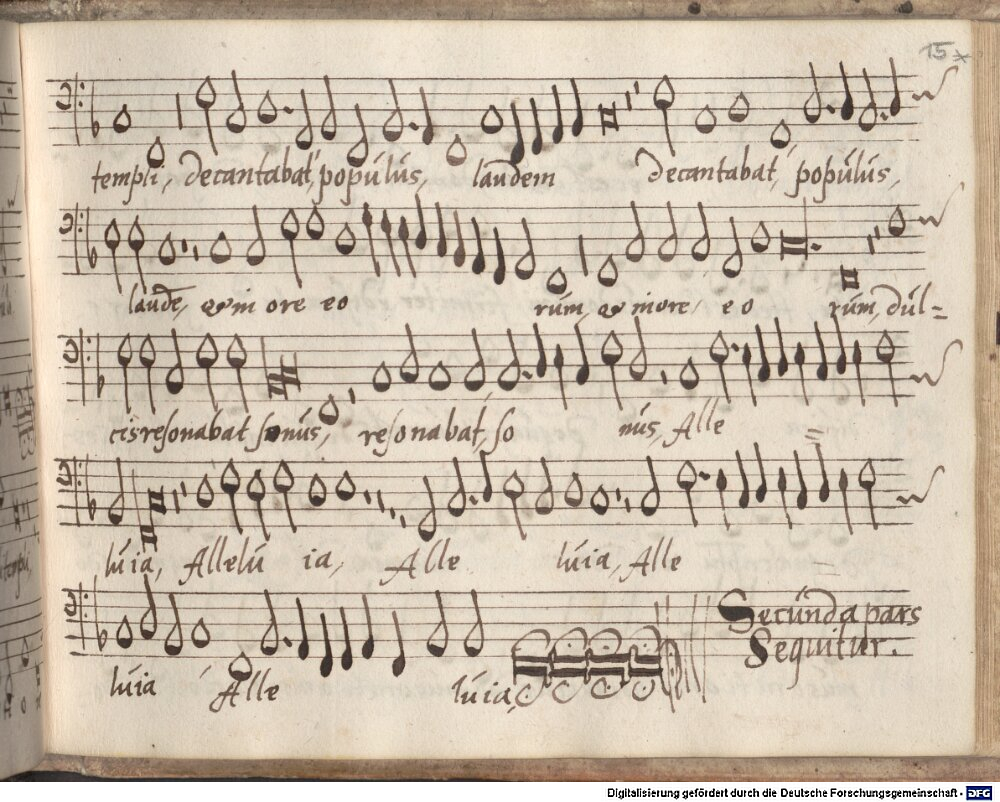 15
templi, decantabat, populus, laudem decantabat, populus,
laudẽ, q̃ in ore eo rum, q̃ in ore, eo rum, dul=
cis resonabat sonus, resonabat, so nus, Alle =
luia, Allelu ia, Alle luia, Alle
luia Alle luia,
Secunda pars
Sequitur.
Digitalisierung gefördert durch die Deutsche Forschungsgemeinschaft - DFG